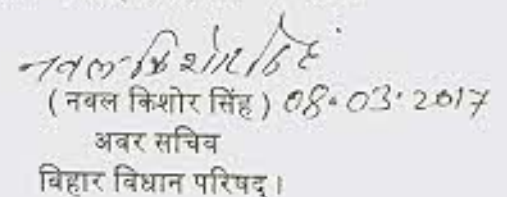 नवल किशोर सिंह
( नवल किशोर सिंह ) 08.03.2017
अवर सचिव
बिहार विधान परिषद् ।